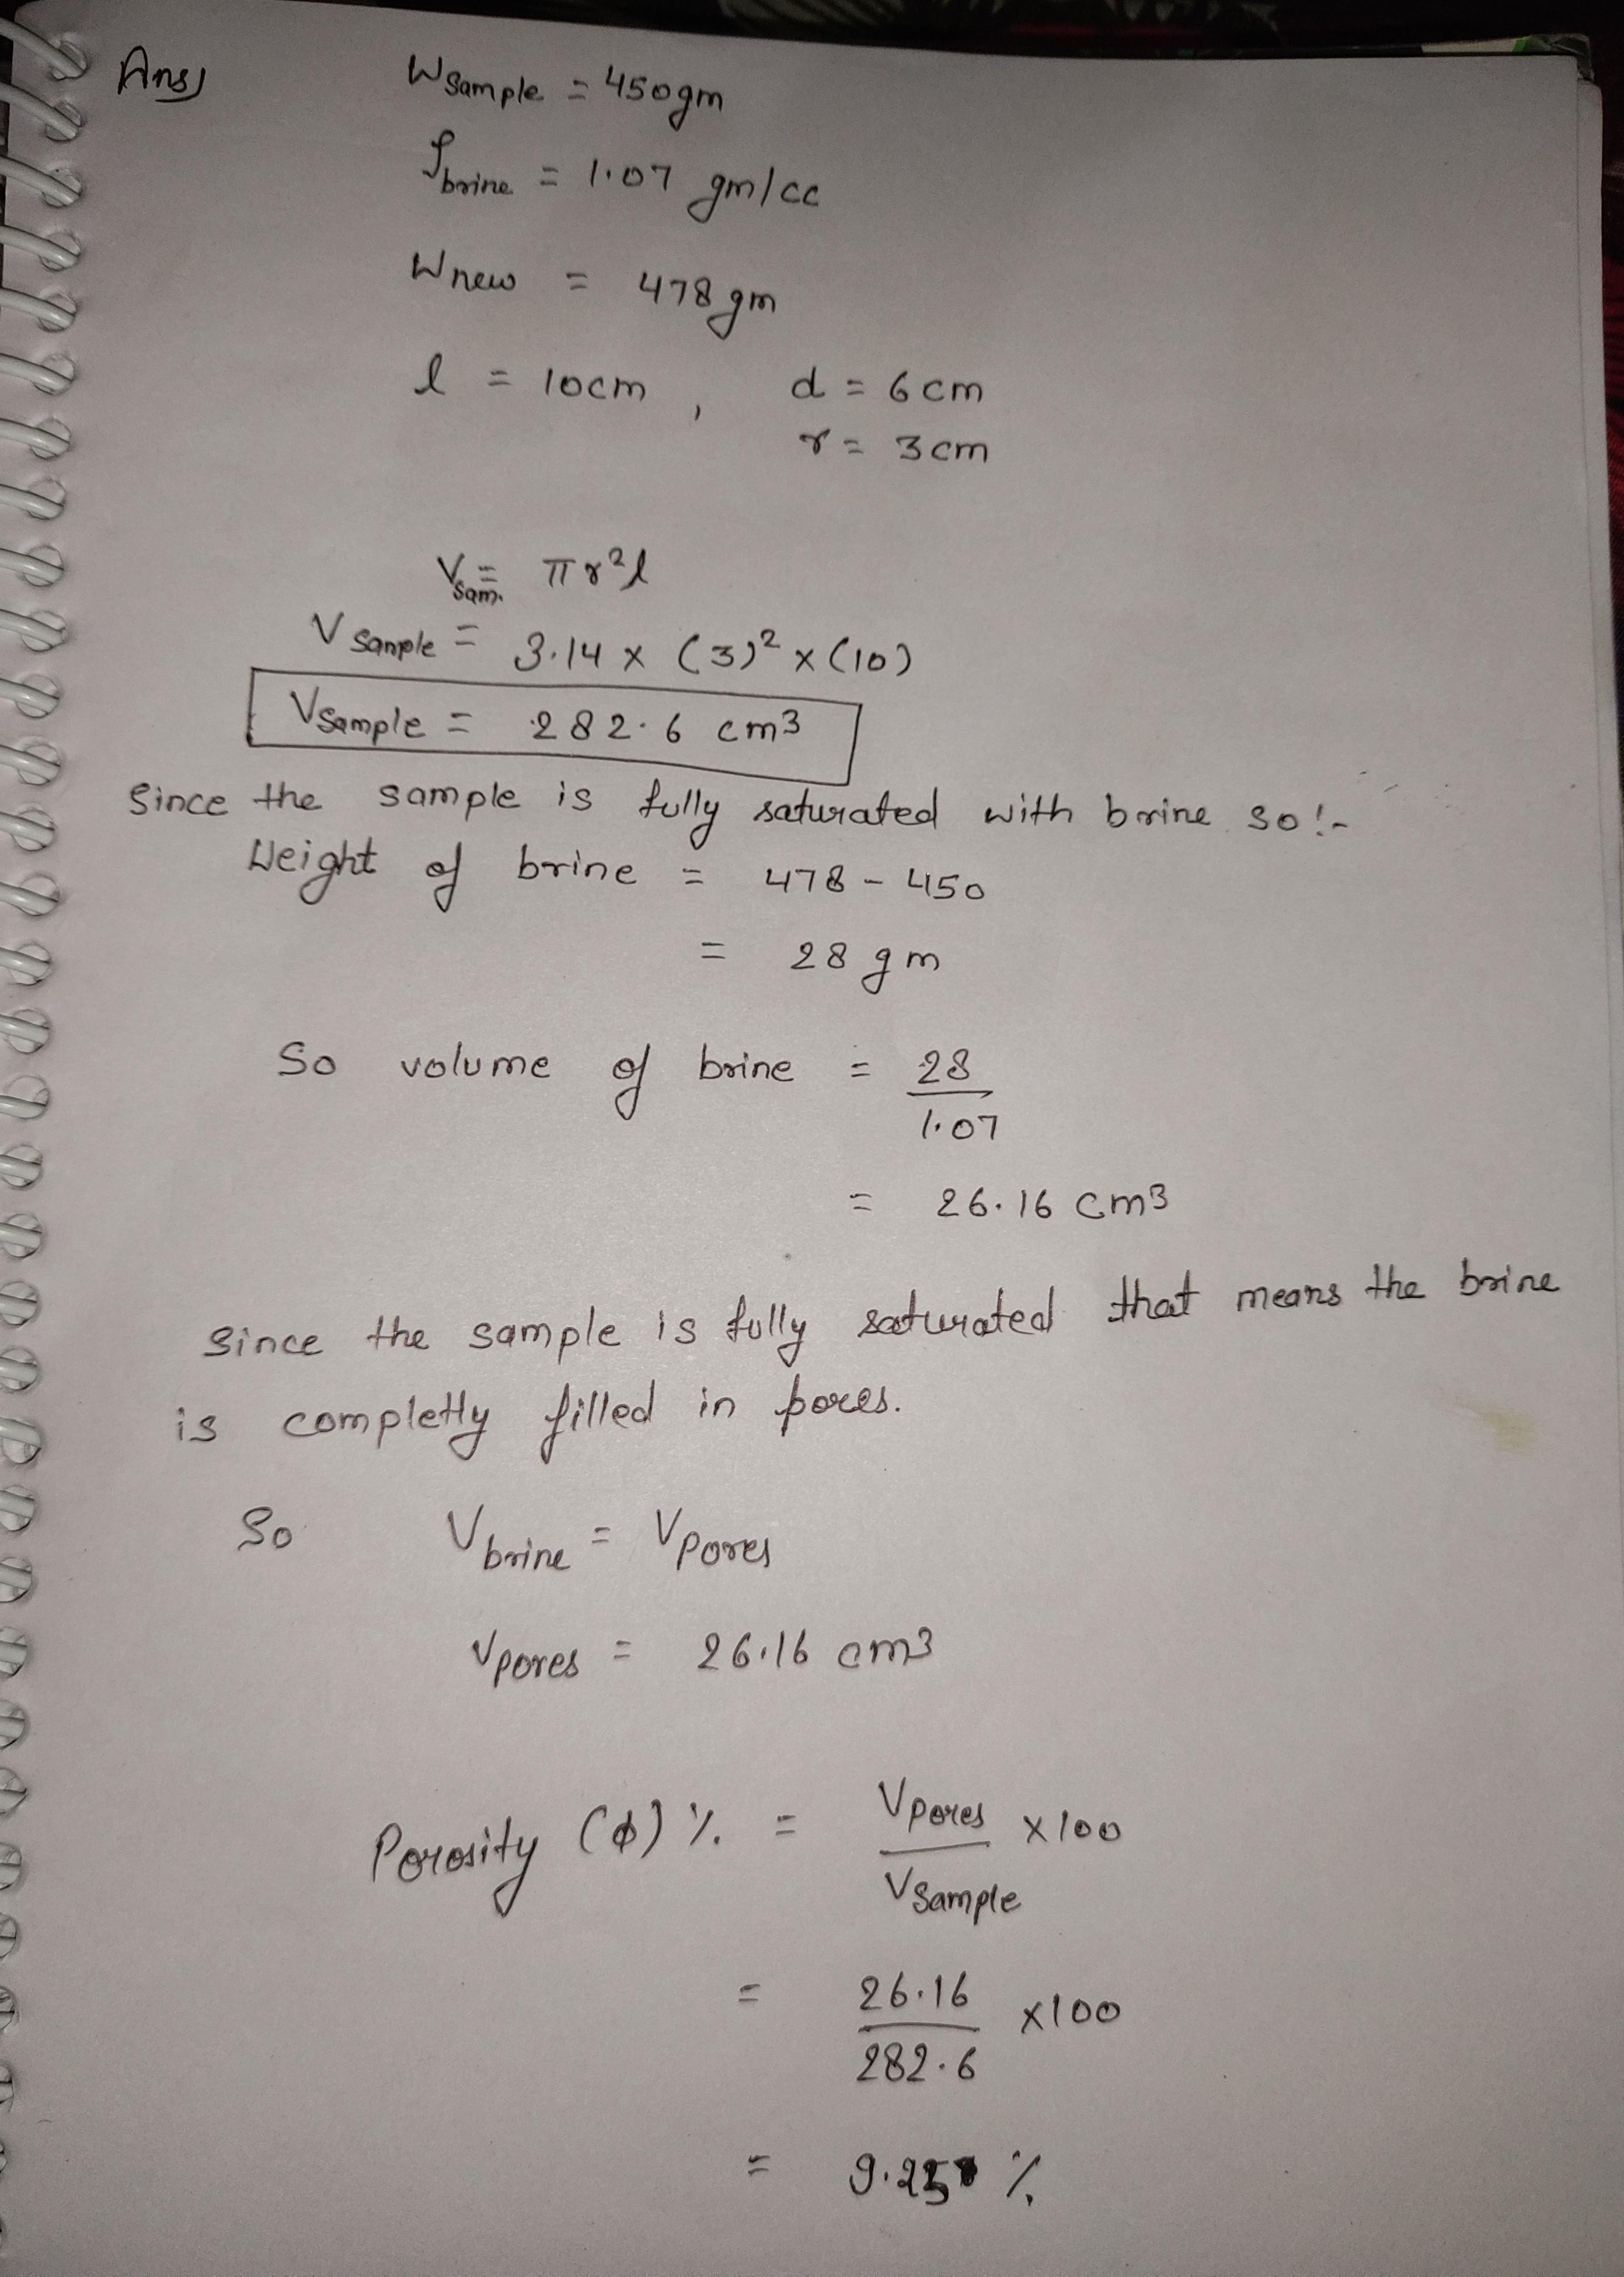 Ans) W sample = 450gm
ρ brine = 1.07 gm/cc
W new = 478 gm
l = 10cm , d = 6cm
r = 3cm
V sam. = πr²l
V sample = 3.14 x (3)² x (10)
V sample = 282.6 cm3
Since the sample is fully saturated with brine so:-
Weight of brine = 478 - 450
= 28 gm
So volume of brine = 28
1.07
= 26.16 cm3
Since the sample is fully saturated that means the brine
is completly filled in pores.
So V brine = V pores
V pores = 26.16 cm3
Porosity (ϕ) % = V pores x100
V sample
= 26.16 x100
282.6
= %